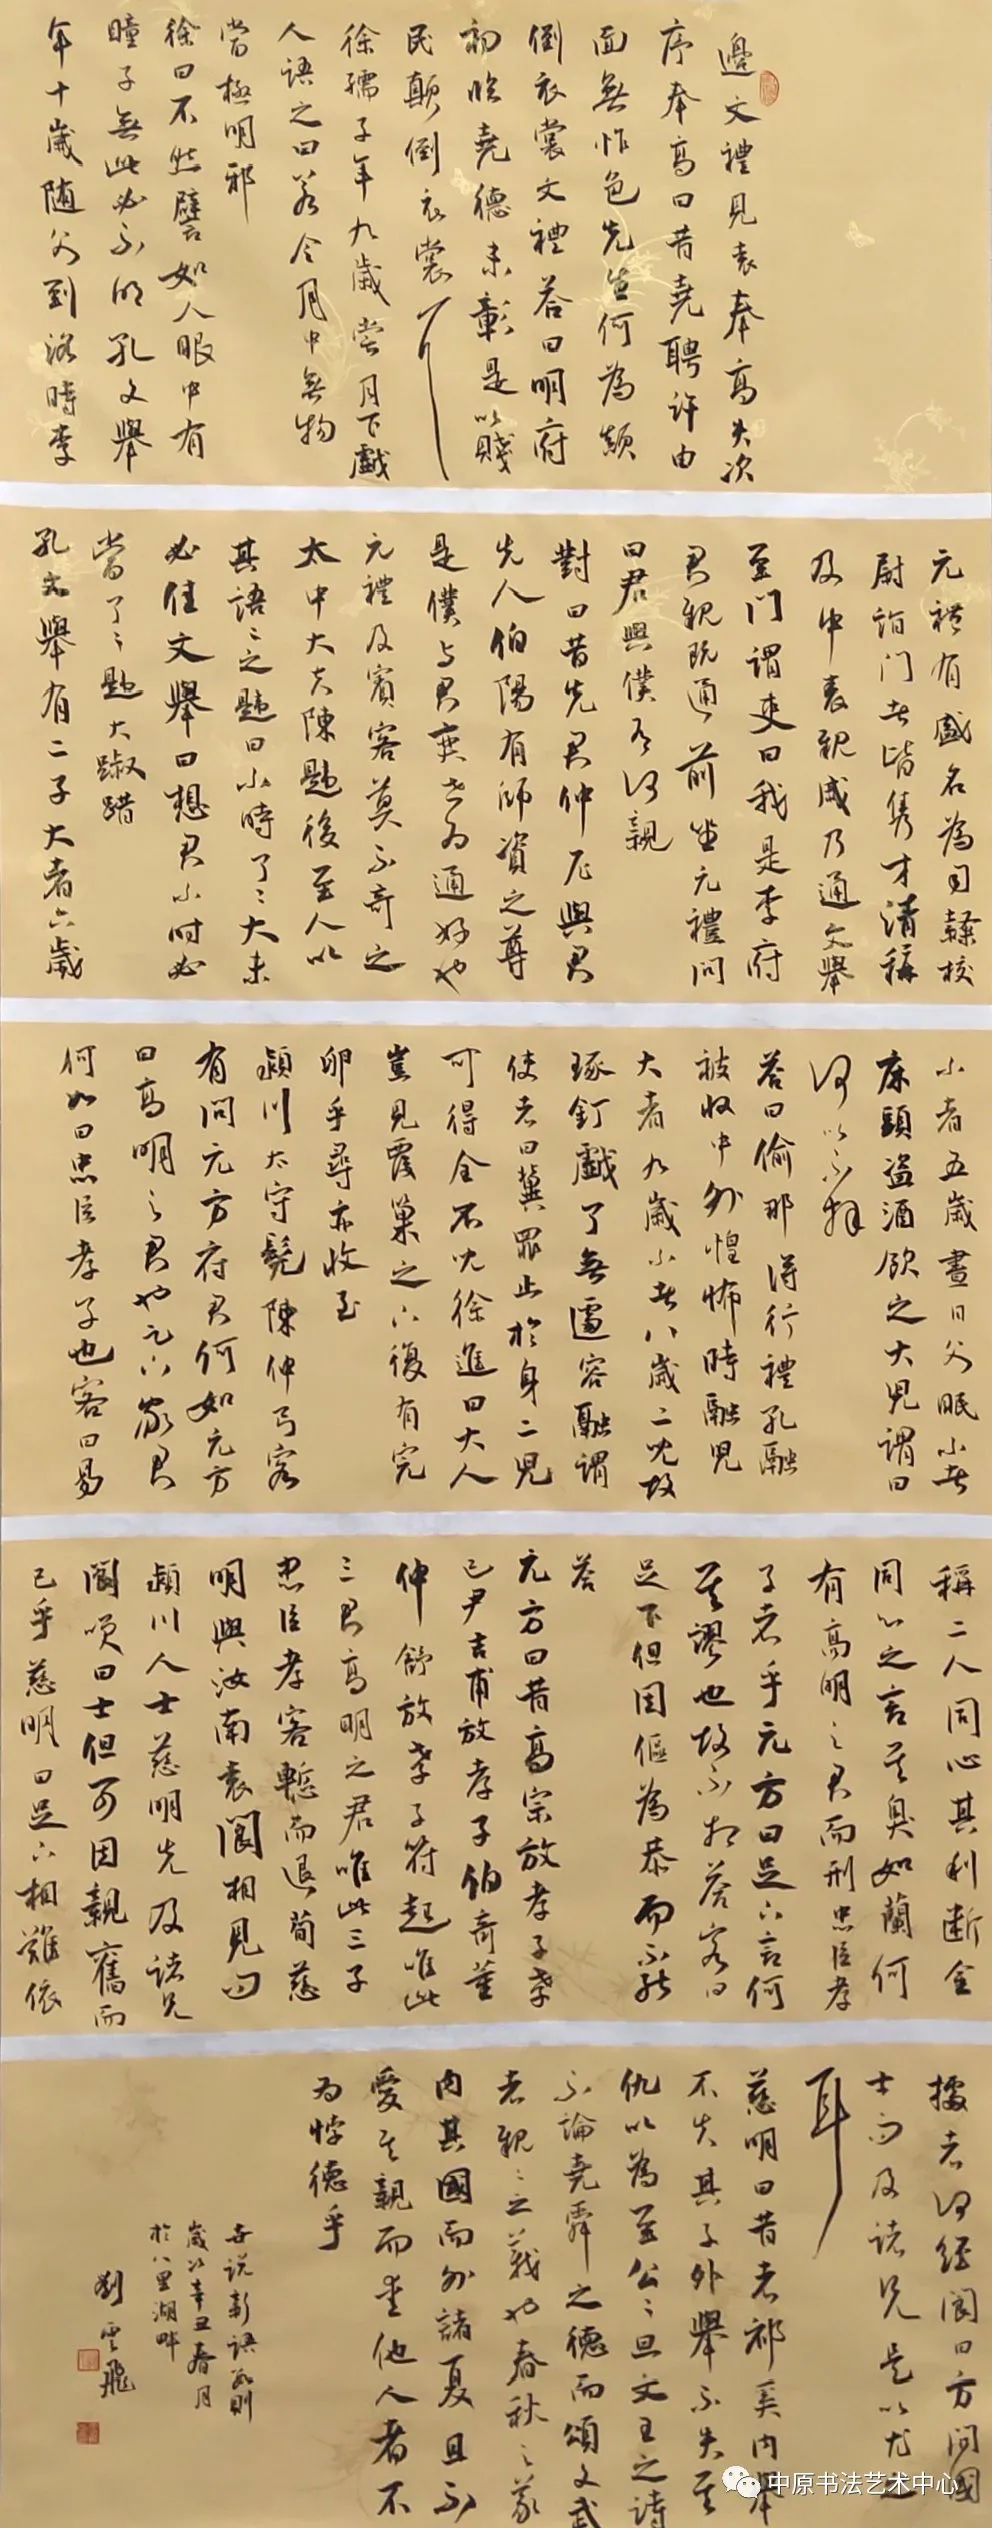 邊文禮見袁奉高失次
序奉高曰昔堯聘許由
面無怍色先生何為顛
倒衣裳文禮答曰明府
初臨堯德未彰是以賤
民顛倒衣裳耳
徐孺子年九歲嘗月下戲
人語之曰若令月中無物
當極明邪
徐曰不然譬如人眼中有
瞳子無此必不明孔文舉
年十歲隨父到洛時李
元禮有盛名為司隸校
尉詣门者皆雋才清稱
及中表親戚乃通文舉
至门謂吏曰我是李府
君親既通前坐元禮问
曰君與僕有何親
對曰昔先君仲尼與君
先人伯陽有師資之尊
是僕与君奕世为通好也
元禮及賓客莫不奇之
太中大夫陳韙後至人以
其語語之韙曰小時了了大未
必佳文舉曰想君小时必
當了了韙大踧踖
孔文舉有二子大者六歲
小者五歲晝日父眠小者
床頭盜酒飲之大兒謂曰
何以不拜
答曰偷那得行禮孔融
被收中外惶怖時融兒
大者九歲小者八歲二兒故
琢釘戲了無遽容融謂
使者曰冀罪止於身二兒
可得全不兒徐進曰大人
豈見覆巢之下復有完
卵乎尋亦收至
潁川太守髡陳仲弓客
有问元方府君何如元方
曰高明之君也足下家君
何如曰忠臣孝子也客曰易
稱二人同心其利斷金
同心之言其臭如蘭何
有高明之君而刑忠臣孝
子者乎元方曰足下言何
其謬也故不相答客曰
足下但因傴為恭而不能
答
元方曰昔高宗放孝子孝
己尹吉甫放孝子伯奇董
仲舒放孝子符起唯此
三君高明之君唯此三子
忠臣孝客慙而退荀慈
明與汝南袁閬相見问
潁川人士慈明先及诸兄
閬笑曰士但可因親舊而
已乎慈明曰足下相難依
據者何经閬曰方问國
士而及诸兄是以尤之
耳
慈明曰昔者祁奚内舉
不失其子外舉不失其
仇以為至公公旦文王之詩
不論堯舜之德而頌文武
者親親之義也春秋之義
内其國而外諸夏且不
愛其親而愛他人者不
为悖德乎
世说新语数则
歲次辛丑春月
於八里湖畔
劉雲飛
中原书法艺术中心